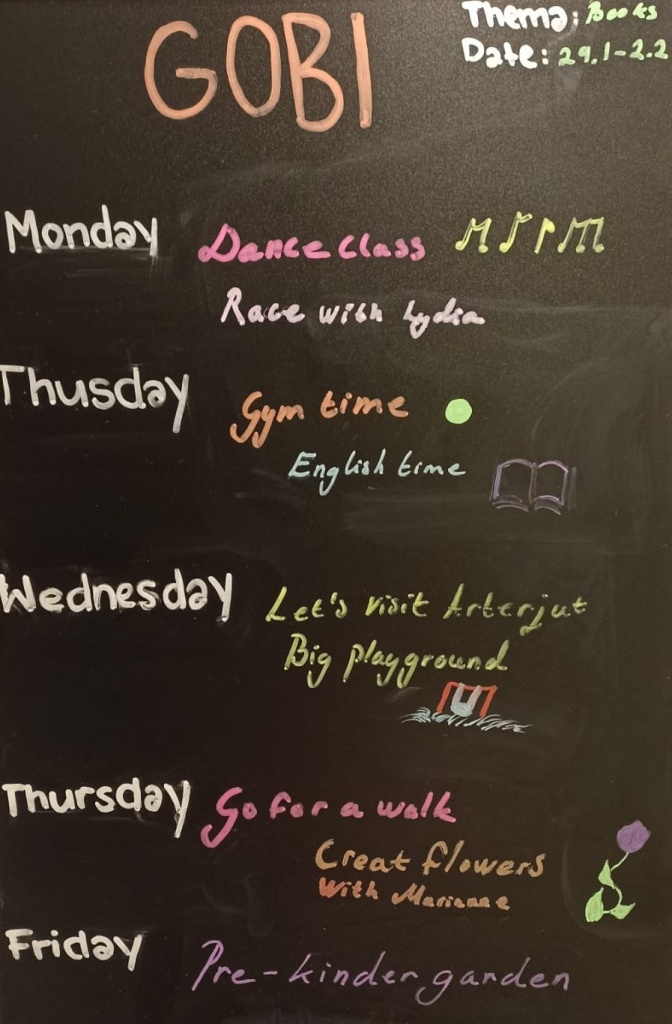 GOBI
Thema: Books
Date: 29.1-2.2
Monday Dance class
Race with Lydia
Thusday Gym time
English time
Wednesday Let's visit Arterjut
Big playground
Thursday Go for a walk
Creat flowers
With Marianne
Friday Pre-kinder garden